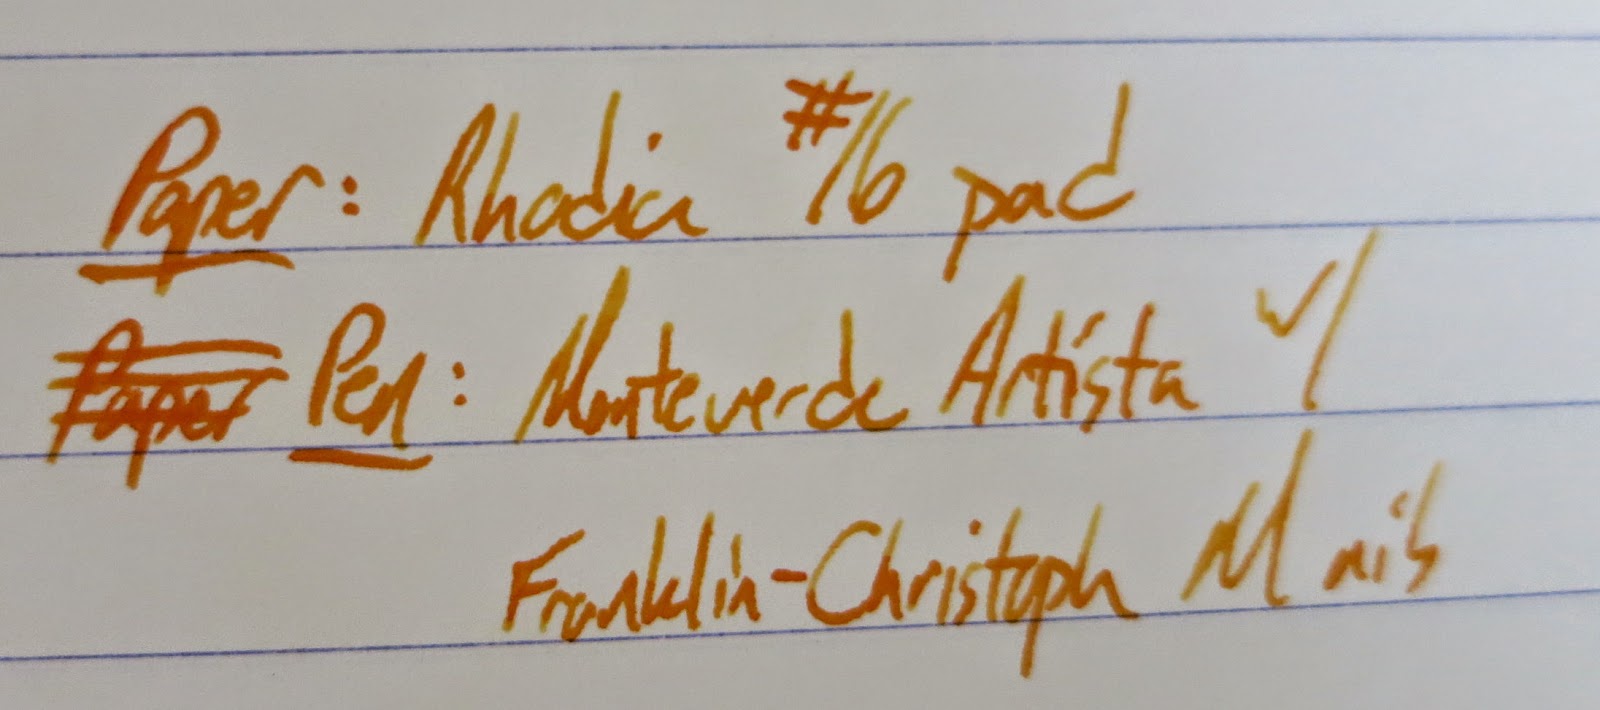 Paper: Rhodia #16 pad
Paper Pen: Monteverde Artista w/
Franklin-Christoph M nib